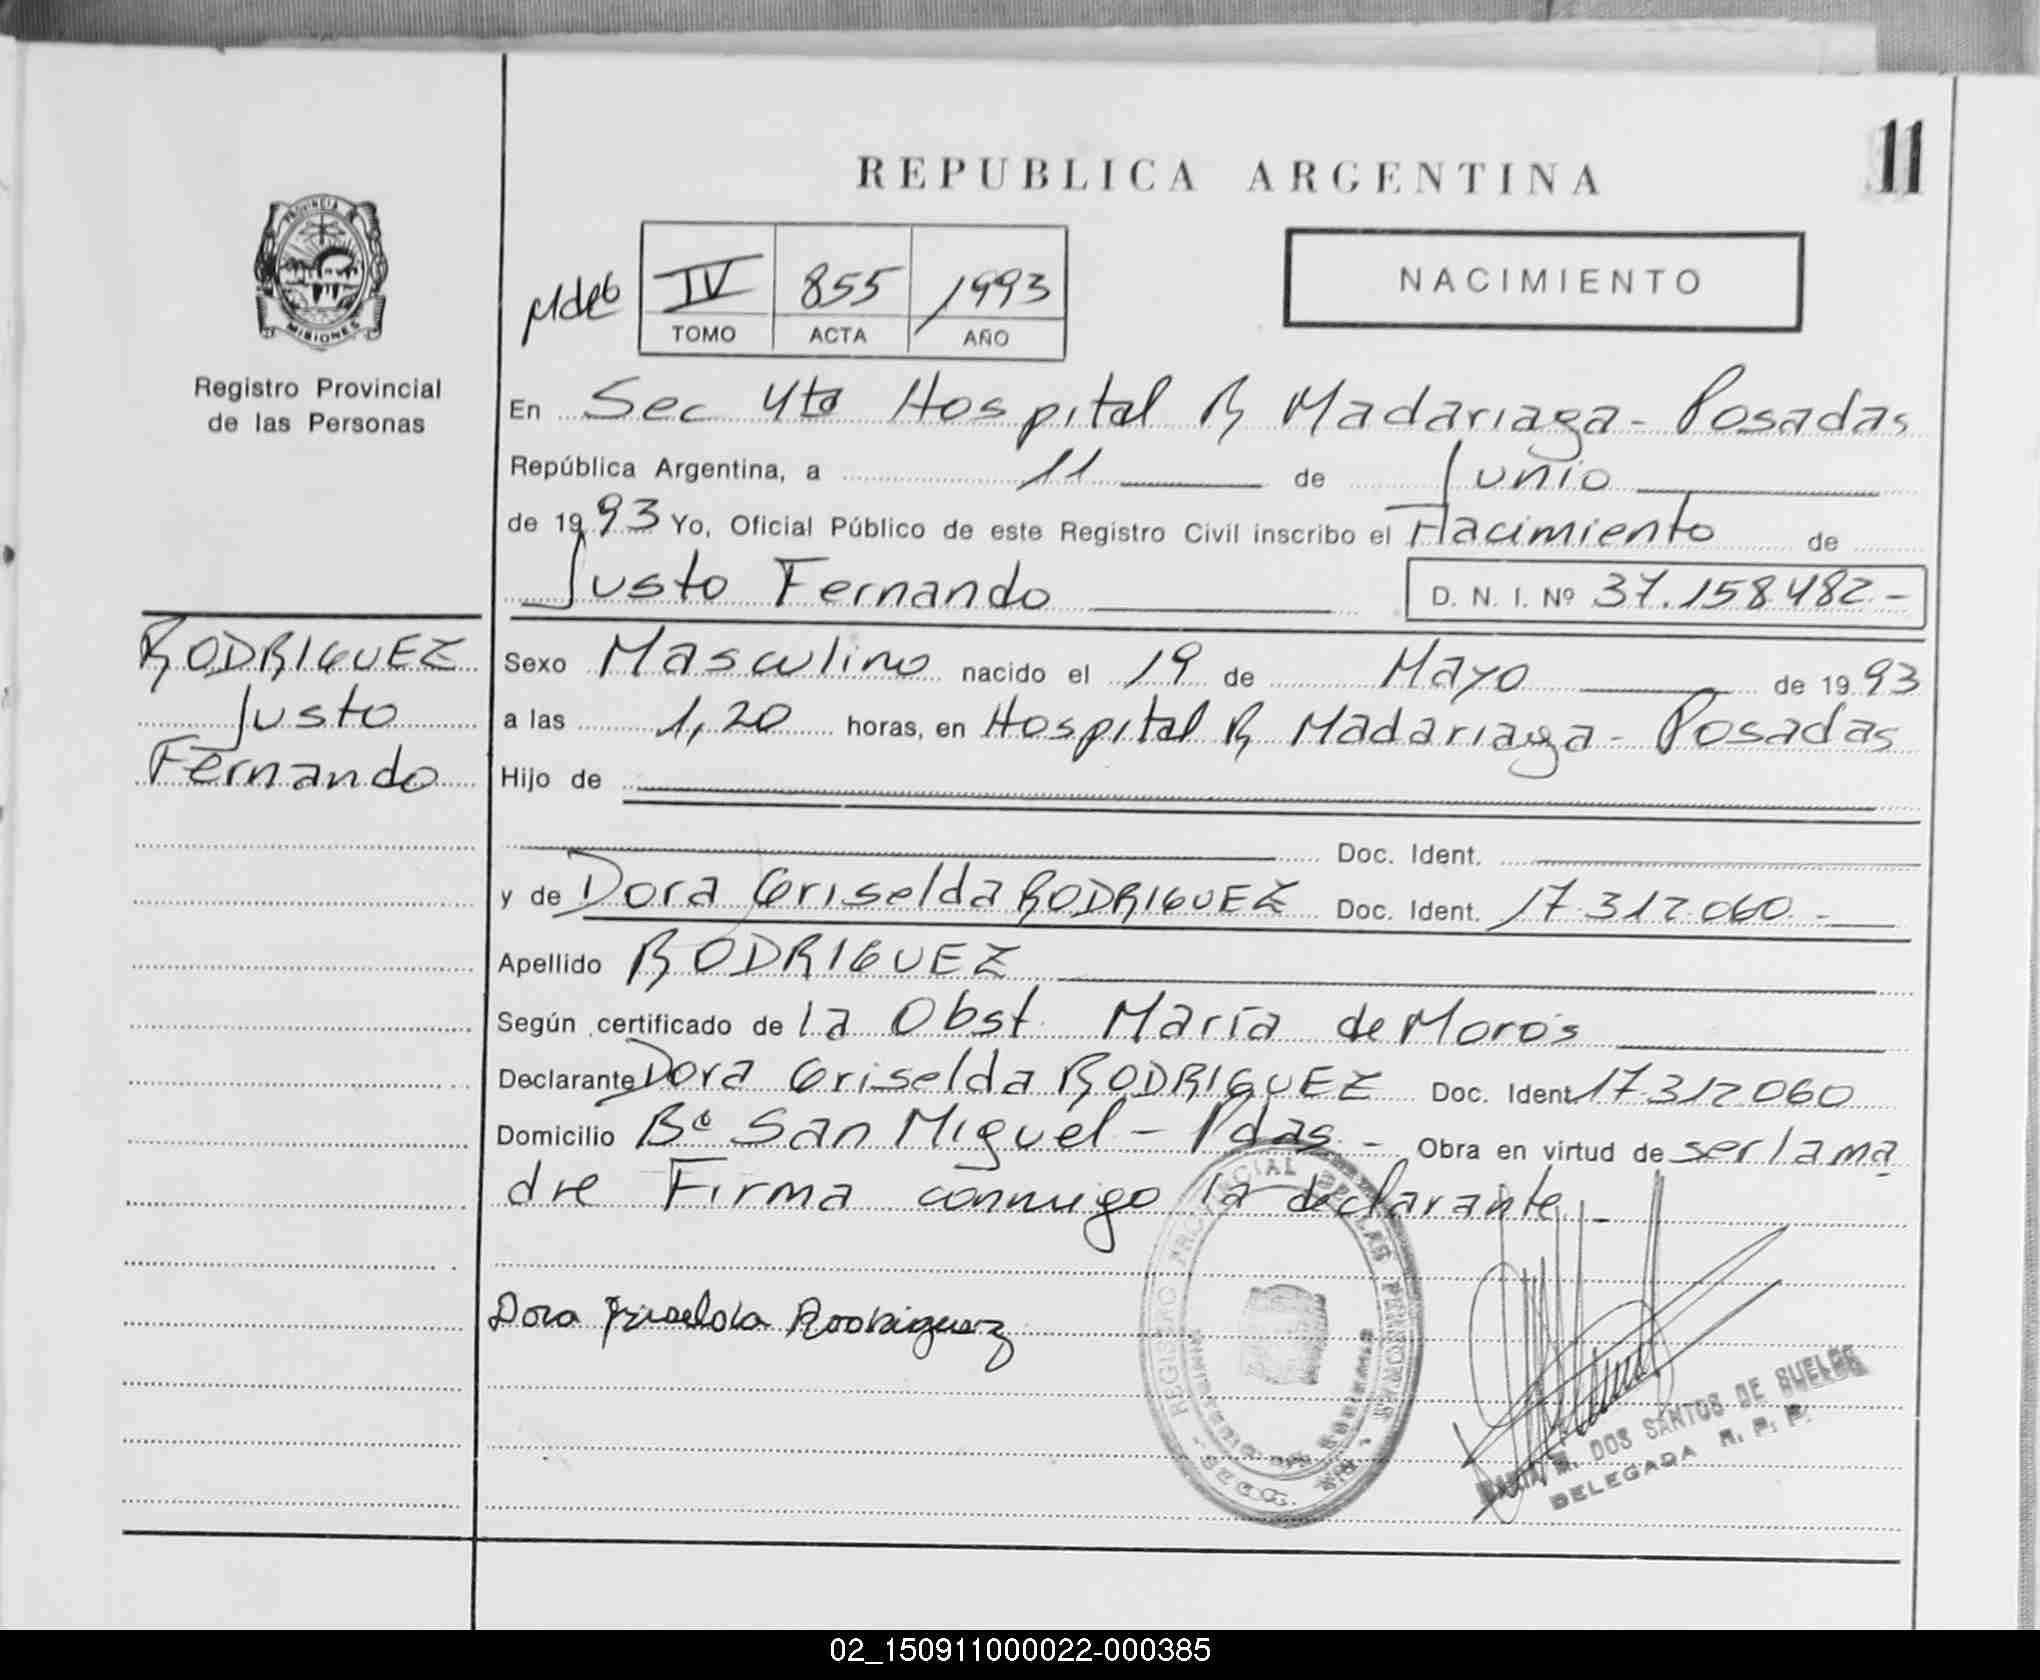 11
REPUBLICA ARGENTINA
PROVINCIA DE
MISIONES
Registro Provincial
de las Personas
IV 855 1993
TOMO ACTA AÑO
NACIMIENTO
En Sec 4ta Hospital R Madariaga - Posadas
República Argentina, a 11 de Junio
de 1993 Yo, Oficial Público de este Registro Civil inscribo el Nacimiento de
Justo Fernando D. N. I. Nº 37.158.482.-
RODRIGUEZ
Justo
Fernando
Sexo Masculino nacido el 19 de Mayo de 1993
a las 1,20 horas, en Hospital R Madariaga - Posadas
Hijo de
Doc. Ident.
y de Dora Griselda RODRIGUEZ Doc. Ident. 17.312.060.-
Apellido RODRIGUEZ
Según certificado de la Obst. María de Moros
Declarante Dora Griselda RODRIGUEZ Doc. Ident 17.312.060
Domicilio Bº San Miguel - Pdas. - Obra en virtud de ser la ma
dre Firma conmigo la declarante.-
Dora Griselda Rodriguez
REGISTRO PROVINCIAL DE LAS PERSONAS
DOS SANTOS DE BUELOS
DELEGADA R. P. P.
02_150911000022-000385